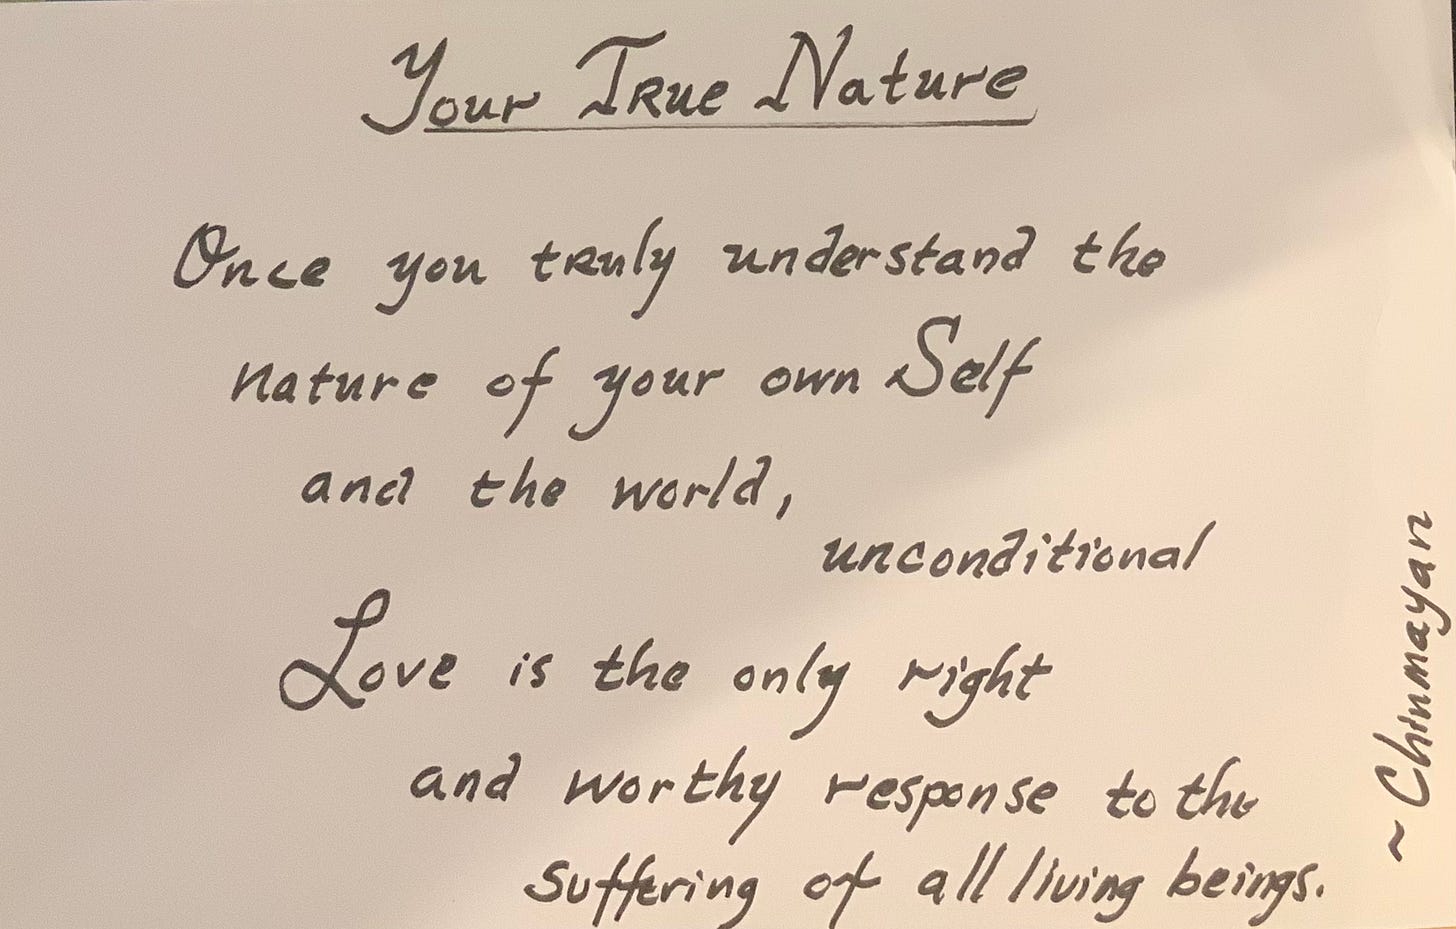 Your True Nature
Once you truly understand the
nature of your own Self
and the world,
unconditional
Love is the only right
and worthy response to the
suffering of all living beings.
~ Chinmayan